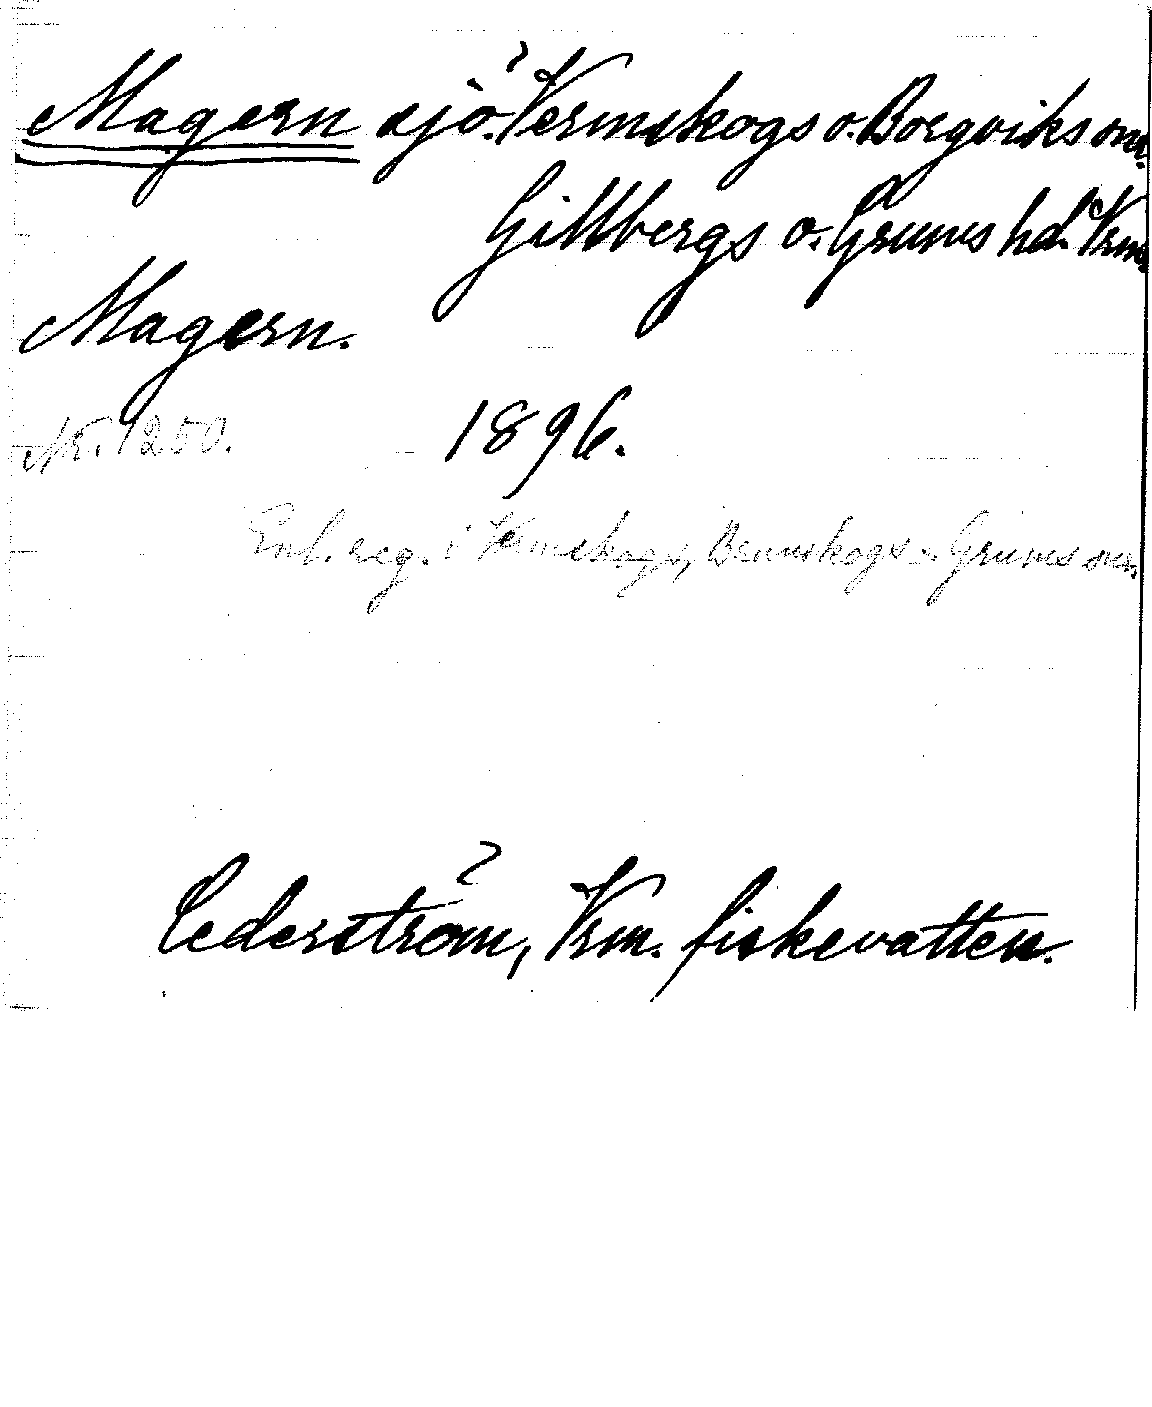 Magern sjö. Vermskogs o. Borgviks snr.
Gillbergs o. Grums hd. Vrm.
Magern.
Nr. 1250. 1896.
Enl. reg. i Vermskogs, Brunskogs o. Grums snr.
Cederström, Vrm. fiskevatten.